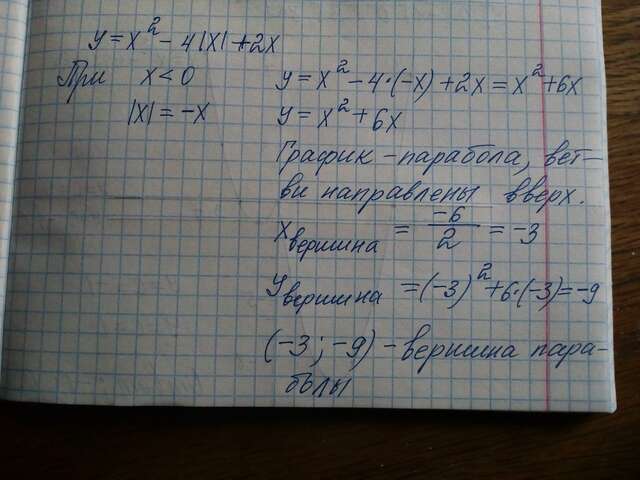 y = x² - 4|x| + 2x
При x < 0 y = x² - 4·(-x) + 2x = x² + 6x
|x| = -x y = x² + 6x
График - парабола, вет-
ви направлены вверх.
x вершина = -6/2 = -3
y вершина = (-3)² + 6·(-3) = -9
(-3; -9) - вершина пара-
болы